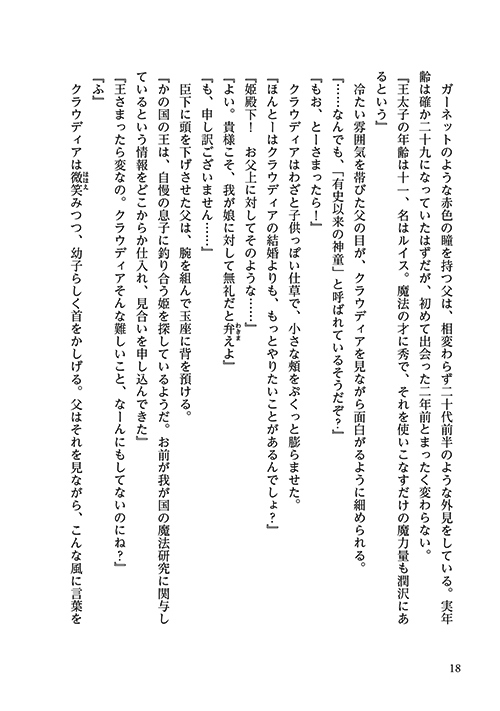 ガーネットのような赤色の瞳を持つ父は、相変わらず二十代前半のような外見をしている。実年
齢は確か二十九になっていたはずだが、初めて出会った二年前とまったく変わらない。
『王太子の年齢は十一、名はルイス。魔法の才に秀で、それを使いこなすだけの魔力量も潤沢にあ
るという』
冷たい雰囲気を帯びた父の目が、クラウディアを見ながら面白がるように細められる。
『……なんでも、「有史以来の神童」と呼ばれているそうだぞ？』
『もお、とーさまったら！』
クラウディアはわざと子供っぽい仕草で、小さな頬をぷくっと膨らませた。
『ほんとーはクラウディアの結婚よりも、もっとやりたいことがあるんでしょ？』
『姫殿下！　お父上に対してそのような……』
『よい。貴様こそ、我が娘に対して無礼だと弁えよ』
わきま
『も、申し訳ございません……』
臣下に頭を下げさせた父は、腕を組んで玉座に背を預ける。
『かの国の王は、自慢の息子に釣り合う姫を探しているようだ。お前が我が国の魔法研究に関与し
ているという情報をどこからか仕入れ、見合いを申し込んできた』
『王さまったら変なの。クラウディアそんな難しいこと、なーんにもしてないのにね？』
『ふ』
クラウディアは微笑みつつ、幼子らしく首をかしげる。父はそれを見ながら、こんな風に言葉を
ほほえ
18